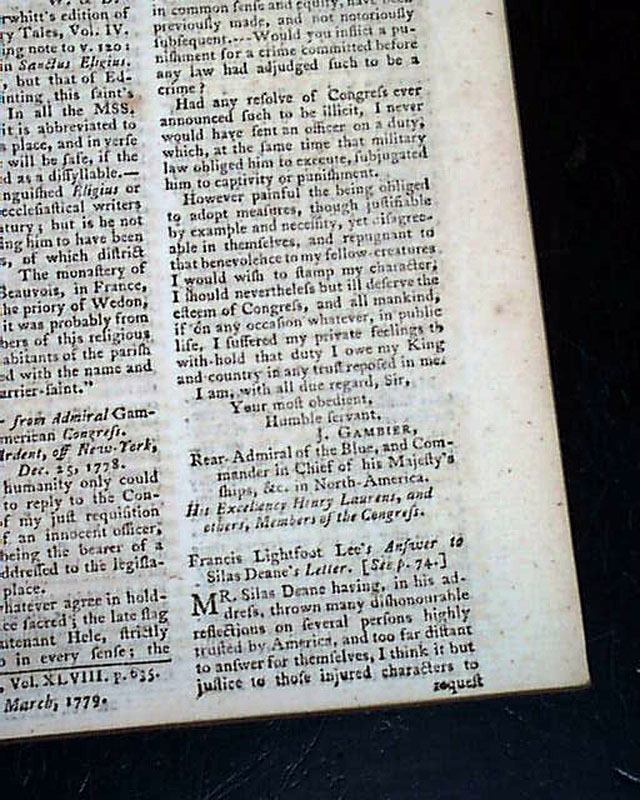 W. & D.
rwhitt's edition of
ry Tales, Vol. IV.
ing note to v. 120:
in Sanctus Eligius.
, but that of Ed-
inting, this saint's
In all the MSS.
it is abbreviated to
a place, and in verse
will be safe, if the
ed as a dissyllable.—
nguished Eligius or
ecclesiastical writers
ntury; but is he not
ing him to have been
s, of which district
The monastery of
Beauvois, in France,
the priory of Wedon,
it was probably from
bers of this religious
abitants of the parish
ed with the name and
arrier-saint."
from Admiral Gam-
merican Congress.
Ardent, off New-York,
Dec. 25, 1778.
humanity only could
to reply to the Con-
of my just requisition
f an innocent officer,
being the bearer of a
ddressed to the legisla-
place.
whatever agree in hold-
ce sacred; the late flag
utenant Hele, strictly
o in every sense; the
. Vol. XLVIII. p. 635.
March, 1779.
in common sense and equity, have been
previously made, and not notoriously
subsequent.---Would you inflict a pu-
nishment for a crime committed before
any law had adjudged such to be a
crime?
Had any resolve of Congress ever
announced such to be illicit, I never
would have sent an officer on a duty,
which, at the same time that military
law obliged him to execute, subjugated
him to captivity or punishment.
However painful the being obliged
to adopt measures, though justifiable
by example and necessity, yet disagree-
able in themselves, and repugnant to
that benevolence to my fellow-creatures
I would wish to stamp my character;
I should nevertheless but ill deserve the
esteem of Congress, and all mankind,
if on any occasion whatever, in public
life, I suffered my private feelings to
with-hold that duty I owe my King
and country in any trust reposed in me.
I am, with all due regard, Sir,
Your most obedient,
Humble servant,
J. GAMBIER,
Rear-Admiral of the Blue, and Com-
mander in Chief of his Majesty's
ships, &c. in North-America.
His Excellency Henry Laurens, and
others, Members of the Congress.
Francis Lightfoot Lee's Answer to
Silas Deane's Letter. [See p. 74.]
MR. Silas Deane having, in his ad-
dress, thrown many dishonourable
reflections on several persons highly
trusted by America, and too far distant
to answer for themselves, I think it but
justice to those injured characters to
request